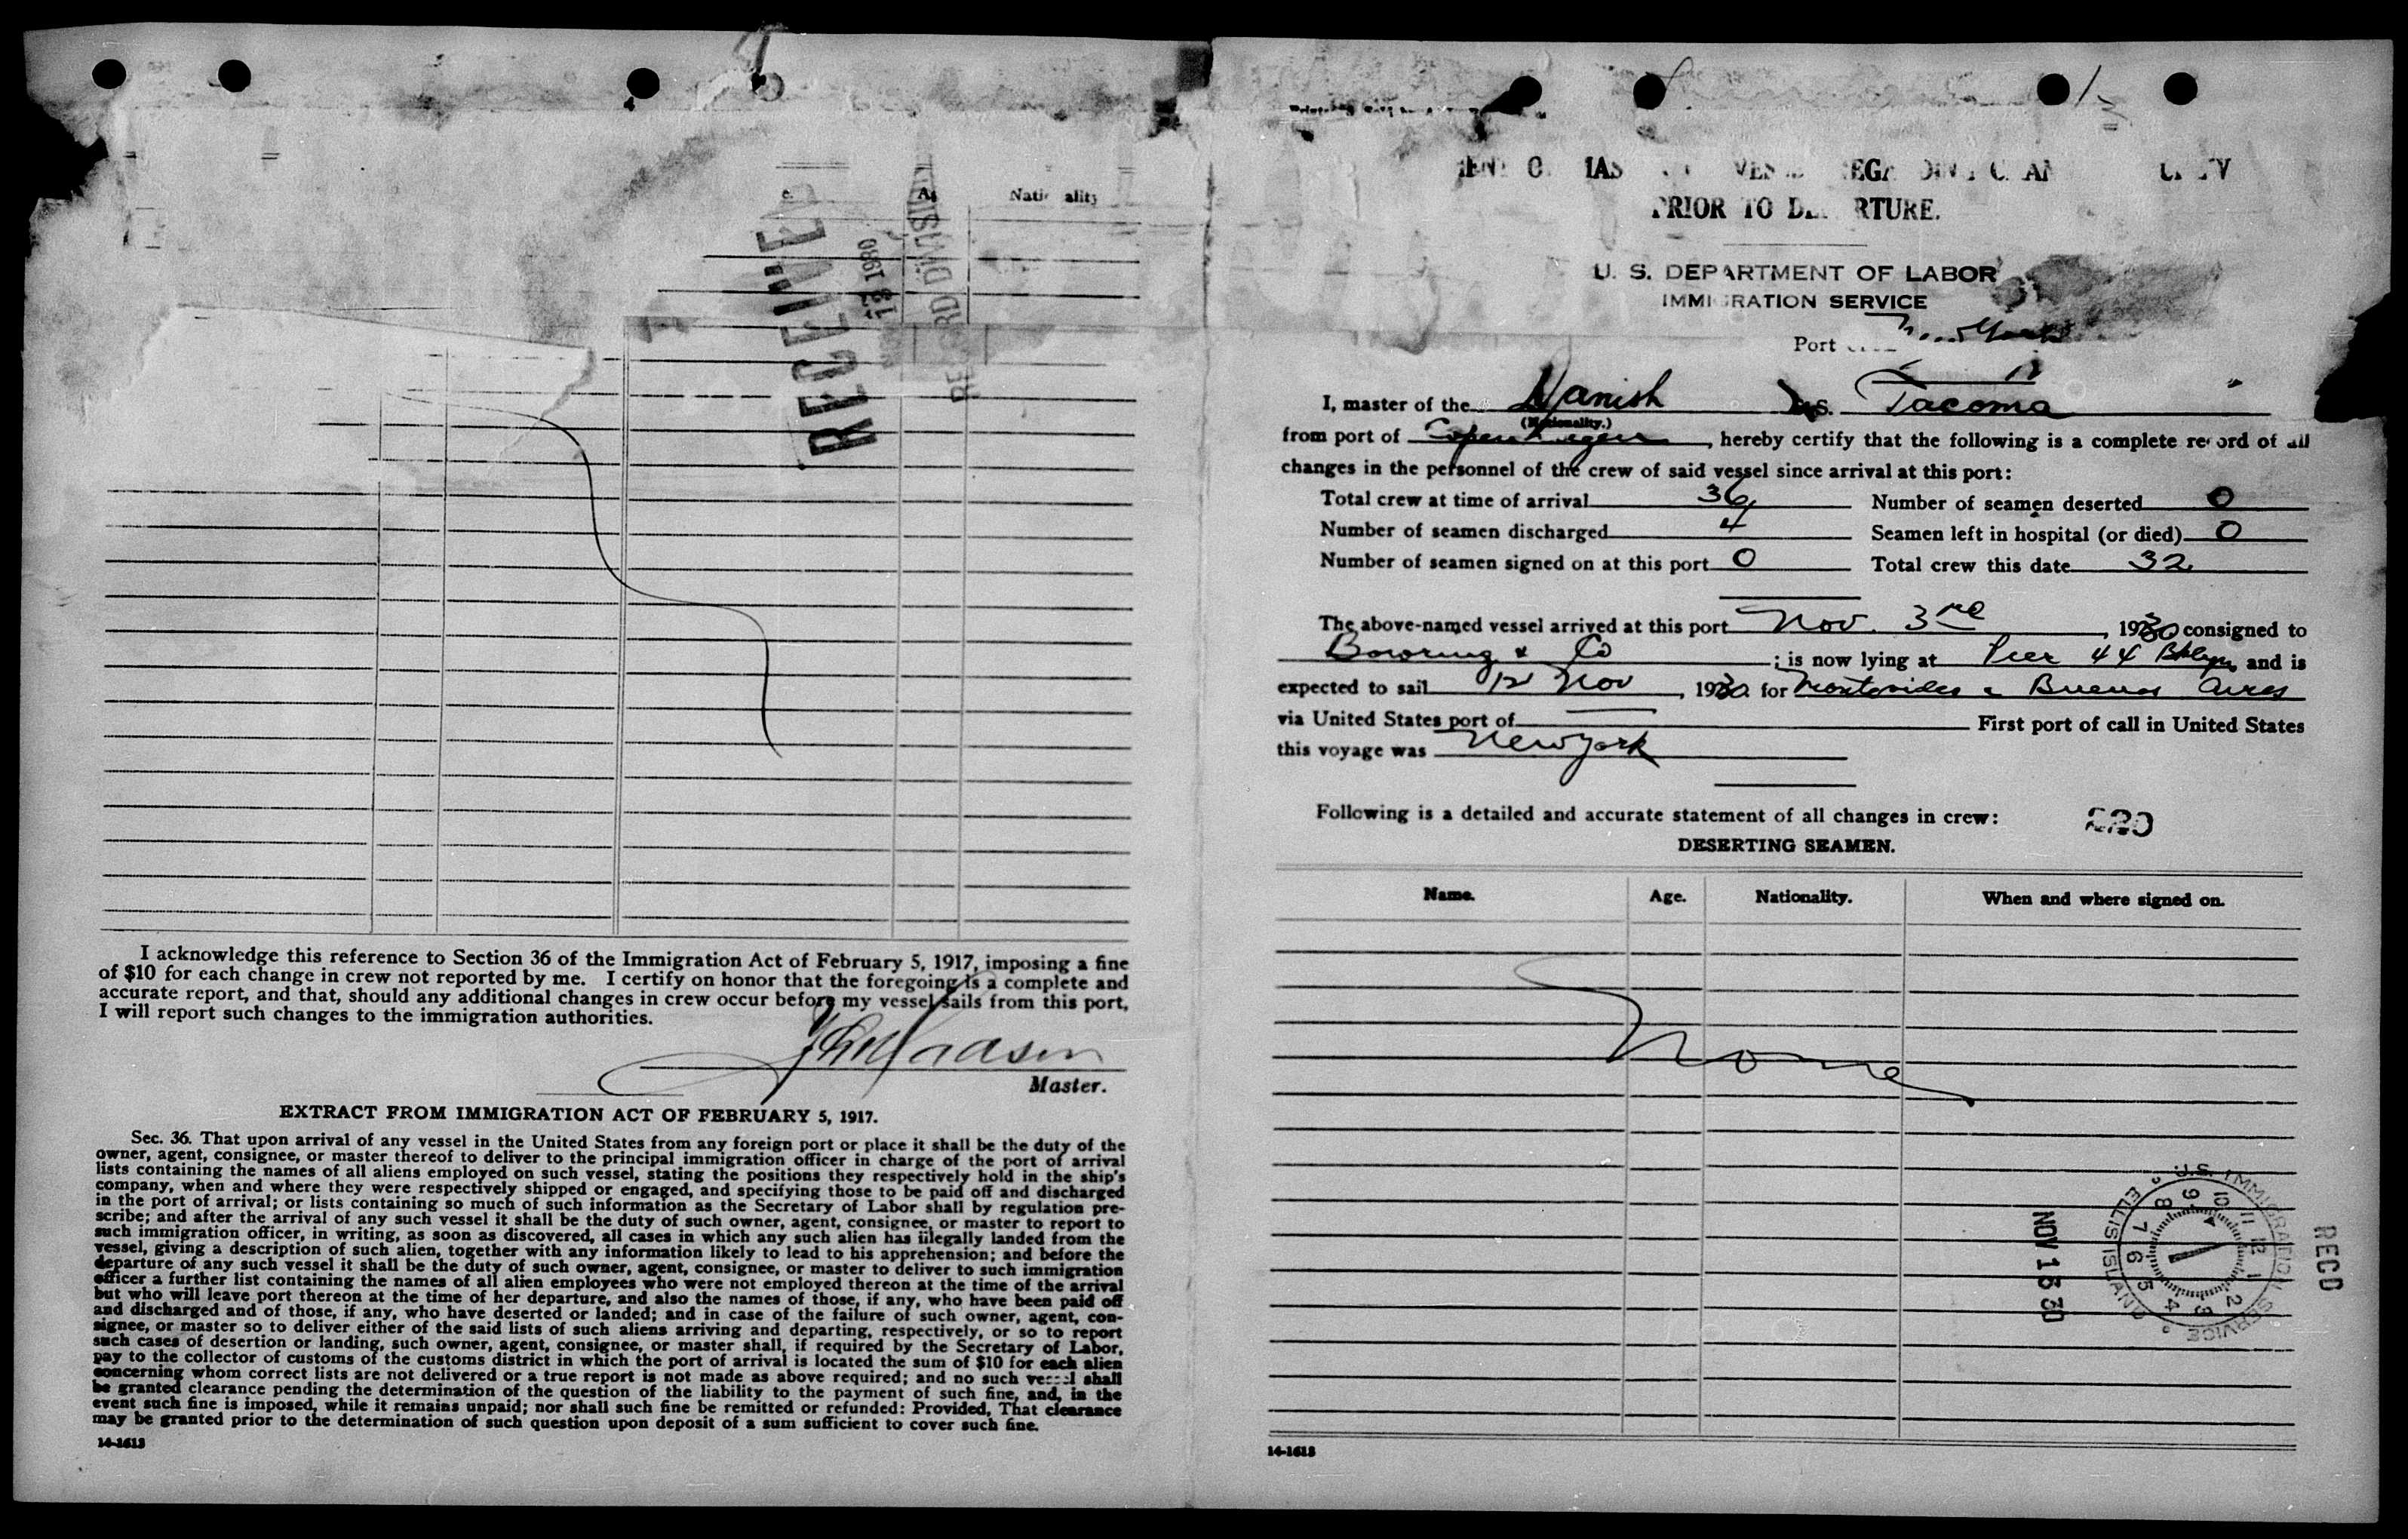 Nationality
RECEIVE
13 1930
RECORD DIVISION
I acknowledge this reference to Section 36 of the Immigration Act of February 5, 1917, imposing a fine
of $10 for each change in crew not reported by me. I certify on honor that the foregoing is a complete and
accurate report, and that, should any additional changes in crew occur before my vessel sails from this port,
I will report such changes to the immigration authorities.
Master.
EXTRACT FROM IMMIGRATION ACT OF FEBRUARY 5, 1917.
Sec. 36. That upon arrival of any vessel in the United States from any foreign port or place it shall be the duty of the
owner, agent, consignee, or master thereof to deliver to the principal immigration officer in charge of the port of arrival
lists containing the names of all aliens employed on such vessel, stating the positions they respectively hold in the ship's
company, when and where they were respectively shipped or engaged, and specifying those to be paid off and discharged
in the port of arrival; or lists containing so much of such information as the Secretary of Labor shall by regulation pre-
scribe; and after the arrival of any such vessel it shall be the duty of such owner, agent, consignee, or master to report to
such immigration officer, in writing, as soon as discovered, all cases in which any such alien has illegally landed from the
vessel, giving a description of such alien, together with any information likely to lead to his apprehension; and before the
departure of any such vessel it shall be the duty of such owner, agent, consignee, or master to deliver to such immigration
officer a further list containing the names of all alien employees who were not employed thereon at the time of the arrival
but who will leave port thereon at the time of her departure, and also the names of those, if any, who have been paid off
and discharged and of those, if any, who have deserted or landed; and in case of the failure of such owner, agent, con-
signee, or master so to deliver either of the said lists of such aliens arriving and departing, respectively, or so to report
such cases of desertion or landing, such owner, agent, consignee, or master shall, if required by the Secretary of Labor,
pay to the collector of customs of the customs district in which the port of arrival is located the sum of $10 for each alien
concerning whom correct lists are not delivered or a true report is not made as above required; and no such vessel shall
be granted clearance pending the determination of the question of the liability to the payment of such fine, and, in the
event such fine is imposed, while it remains unpaid; nor shall such fine be remitted or refunded: Provided, That clearance
may be granted prior to the determination of such question upon deposit of a sum sufficient to cover such fine.
14-1613
PRIOR TO DEPARTURE.
U. S. DEPARTMENT OF LABOR
IMMIGRATION SERVICE
Port New York
I, master of the Danish S. Tacoma
(Nationality.)
from port of Copenhagen, hereby certify that the following is a complete record of all
changes in the personnel of the crew of said vessel since arrival at this port:
Total crew at time of arrival 36 Number of seamen deserted 0
Number of seamen discharged 4 Seamen left in hospital (or died) 0
Number of seamen signed on at this port 0 Total crew this date 32
The above-named vessel arrived at this port Nov. 3rd, 1930 consigned to
Bowring & Co; is now lying at Pier 44 Bklyn and is
expected to sail 12 Nov, 1930 for Montevideo & Buenos Aires
via United States port of First port of call in United States
this voyage was New York
Following is a detailed and accurate statement of all changes in crew: 220
DESERTING SEAMEN.
Name. Age. Nationality. When and where signed on.
None
U.S. IMMIGRATION SERVICE
ELLIS ISLAND
1 2 3 4 5 6 7 8 9 10 11 12
NOV 13 30
RECD
14-1613